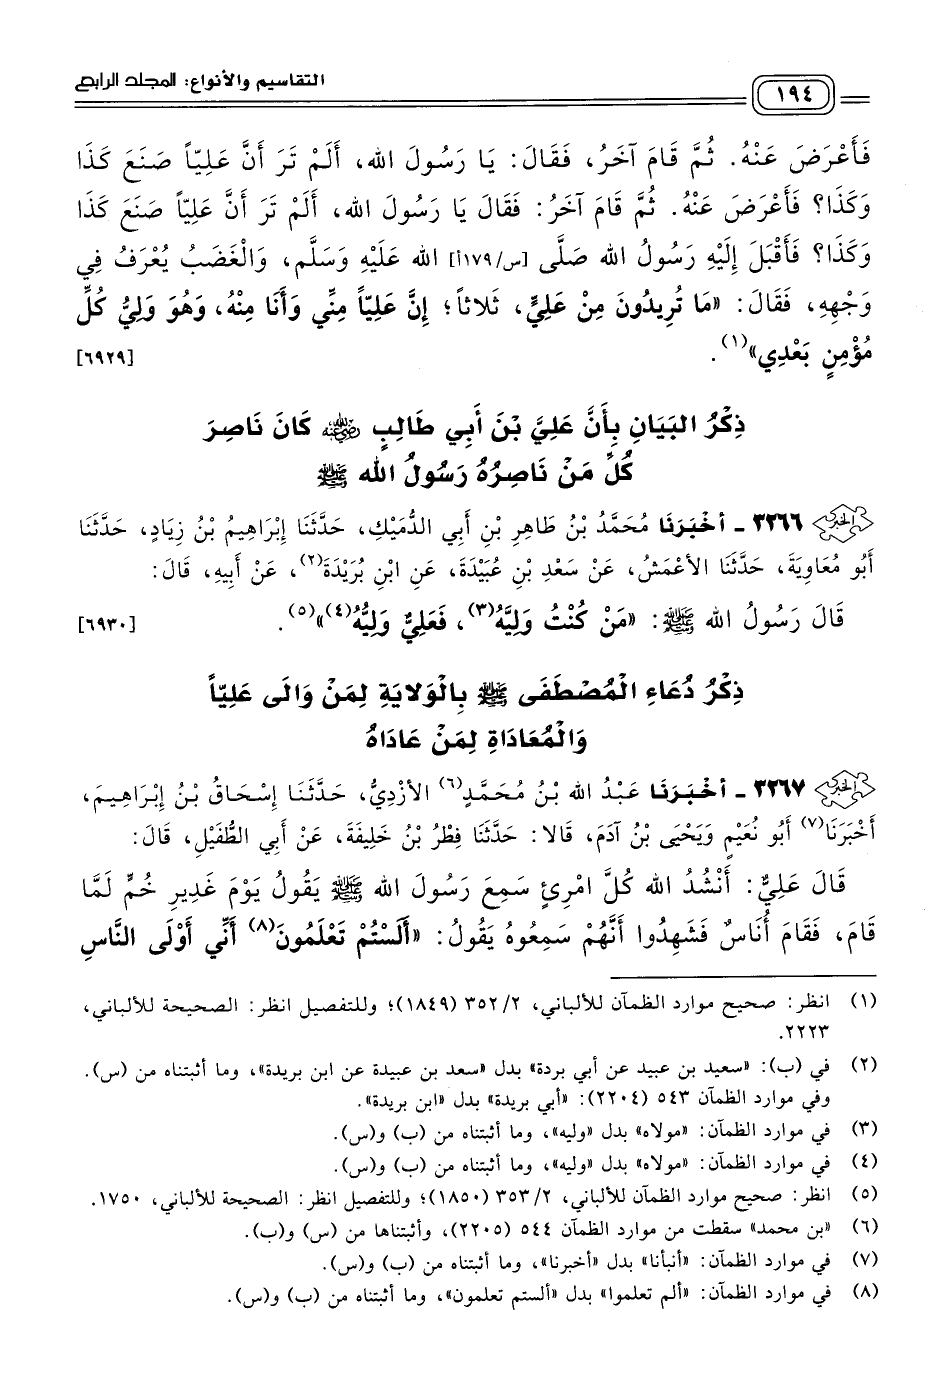 ١٩٤
التقاسيم والأنواع: المجلد الرابع
فَأَعْرَضَ عَنْهُ. ثُمَّ قَامَ آخَرُ، فَقَالَ: يَا رَسُولَ الله، أَلَمْ تَرَ أَنَّ عَلِيّاً صَنَعَ كَذَا
وَكَذَا؟ فَأَعْرَضَ عَنْهُ. ثُمَّ قَامَ آخَرُ: فَقَالَ يَا رَسُولَ الله، أَلَمْ تَرَ أَنَّ عَلِيّاً صَنَعَ كَذَا
وَكَذَا؟ فَأَقْبَلَ إِلَيْهِ رَسُولُ الله صَلَّى [س/١٧٩أ] الله عَلَيْهِ وَسَلَّم، وَالْغَضَبُ يُعْرَفُ فِي
وَجْهِهِ، فَقَالَ: «مَا تُرِيدُونَ مِنْ عَلِيٍّ، ثَلاثاً؛ إِنَّ عَلِيّاً مِنِّي وَأَنَا مِنْهُ، وَهُوَ وَلِيُّ كُلِّ
مُؤْمِنٍ بَعْدِي»(١). [٦٩٢٩]
ذِكْرُ البَيَانِ بِأَنَّ عَلِيَّ بْنَ أَبِي طَالِبٍ ﵁ كَانَ نَاصِرَ
كُلِّ مَنْ نَاصِرُهُ رَسُولُ الله ﷺ
الخبر ٣٢٦٦ - أَخْبَرَنَا مُحَمَّدُ بْنُ طَاهِرِ بْنِ أَبِي الدُّمَيْكِ، حَدَّثَنَا إِبْرَاهِيمُ بْنُ زِيَادٍ، حَدَّثَنَا
أَبُو مُعَاوِيَةَ، حَدَّثَنَا الأَعْمَشُ، عَنْ سَعْدِ بْنِ عُبَيْدَةَ، عَنِ ابْنِ بُرَيْدَةَ(٢)، عَنْ أَبِيهِ، قَالَ:
قَالَ رَسُولُ الله ﷺ: «مَنْ كُنْتُ وَلِيَّهُ(٣)، فَعَلِيٌّ وَلِيُّهُ(٤)»(٥). [٦٩٣٠]
ذِكْرُ دُعَاءِ الْمُصْطَفَى ﷺ بِالْوَلايَةِ لِمَنْ وَالَى عَلِيّاً
وَالْمُعَادَاةِ لِمَنْ عَادَاهُ
الخبر ٣٢٦٧ - أَخْبَرَنَا عَبْدُ الله بْنُ مُحَمَّدٍ(٦) الأَزْدِيُّ، حَدَّثَنَا إِسْحَاقُ بْنُ إِبْرَاهِيمَ،
أَخْبَرَنَا(٧) أَبُو نُعَيْمٍ وَيَحْيَى بْنُ آدَمَ، قَالا: حَدَّثَنَا فِطْرُ بْنُ خَلِيفَةَ، عَنْ أَبِي الطُّفَيْلِ، قَالَ:
قَالَ عَلِيٌّ: أَنْشُدُ الله كُلَّ امْرِئٍ سَمِعَ رَسُولَ الله ﷺ يَقُولُ يَوْمَ غَدِيرِ خُمٍّ لَمَّا
قَامَ، فَقَامَ أُنَاسٌ فَشَهِدُوا أَنَّهُمْ سَمِعُوهُ يَقُولُ: «أَلَسْتُمْ تَعْلَمُونَ(٨) أَنِّي أَوْلَى النَّاسِ
(١) انظر: صحيح موارد الظمآن للألباني، ٣٥٢/٢ (١٨٤٩)؛ وللتفصيل انظر: الصحيحة للألباني،
٢٢٢٣.
(٢) في (ب): «سعيد بن عبيد عن أبي بردة» بدل «سعد بن عبيدة عن ابن بريدة»، وما أثبتناه من (س).
وفي موارد الظمآن ٥٤٣ (٢٢٠٤): «أبي بريدة» بدل «ابن بريدة».
(٣) في موارد الظمآن: «مولاه» بدل «وليه»، وما أثبتناه من (ب) و(س).
(٤) في موارد الظمآن: «مولاه» بدل «وليه»، وما أثبتناه من (ب) و(س).
(٥) انظر: صحيح موارد الظمآن للألباني، ٣٥٣/٢ (١٨٥٠)؛ وللتفصيل انظر: الصحيحة للألباني، ١٧٥٠.
(٦) «بن محمد» سقطت من موارد الظمآن ٥٤٤ (٢٢٠٥)، وأثبتناها من (س) و(ب).
(٧) في موارد الظمآن: «أنبأنا» بدل «أخبرنا»، وما أثبتناه من (ب) و(س).
(٨) في موارد الظمآن: «ألم تعلموا» بدل «ألستم تعلمون»، وما أثبتناه من (ب) و(س).